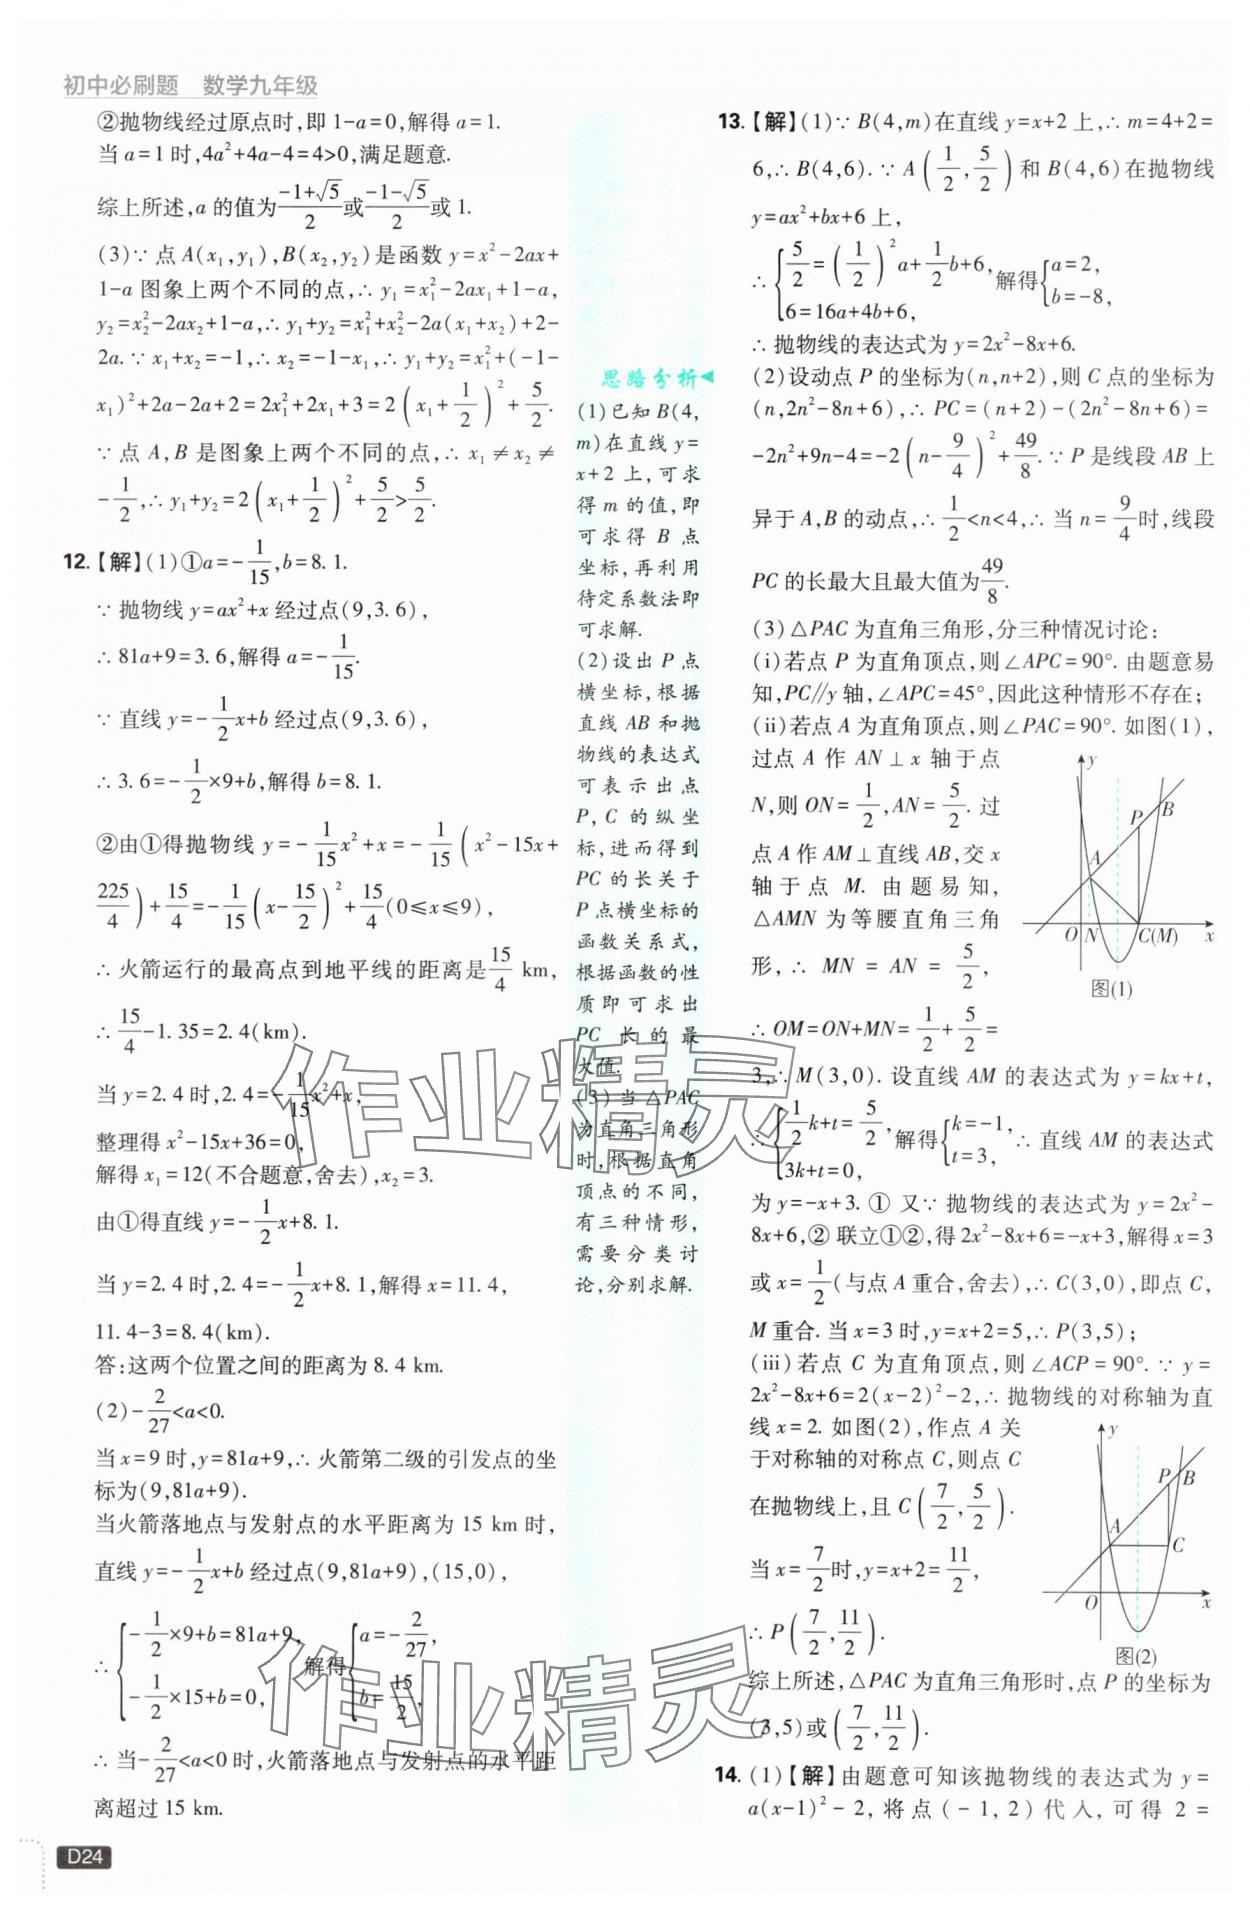 初中必刷题 数学九年级
②抛物线经过原点时,即 1-a=0,解得 a=1.
当 a=1 时,4a²+4a-4=4>0,满足题意.
综上所述,a 的值为(-1+√5)/2或(-1-√5)/2或 1.
(3)∵ 点 A(x₁,y₁),B(x₂,y₂)是函数 y=x²-2ax+
1-a 图象上两个不同的点,∴ y₁=x₁²-2ax₁+1-a,
y₂=x₂²-2ax₂+1-a,∴ y₁+y₂=x₁²+x₂²-2a(x₁+x₂)+2-
2a. ∵ x₁+x₂=-1,∴ x₂=-1-x₁,∴ y₁+y₂=x₁²+(-1-
x₁)²+2a-2a+2=2x₁²+2x₁+3=2(x₁+1/2)²+5/2.
∵ 点 A,B 是图象上两个不同的点,∴ x₁≠x₂≠
-1/2,∴ y₁+y₂=2(x₁+1/2)²+5/2>5/2.
12.【解】(1)①a=-1/15,b=8.1.
∵ 抛物线 y=ax²+x 经过点(9,3.6),
∴ 81a+9=3.6,解得 a=-1/15.
∵ 直线 y=-1/2x+b 经过点(9,3.6),
∴ 3.6=-1/2×9+b,解得 b=8.1.
②由①得抛物线 y=-1/15x²+x=-1/15(x²-15x+
225/4)+15/4=-1/15(x-15/2)²+15/4(0≤x≤9),
∴ 火箭运行的最高点到地平线的距离是15/4 km,
∴ 15/4-1.35=2.4(km).
当 y=2.4 时,2.4=-1/15x²+x,
整理得 x²-15x+36=0,
解得 x₁=12(不合题意,舍去),x₂=3.
由①得直线 y=-1/2x+8.1.
当 y=2.4 时,2.4=-1/2x+8.1,解得 x=11.4,
11.4-3=8.4(km).
答:这两个位置之间的距离为 8.4 km.
(2)-2/27<a<0.
当 x=9 时,y=81a+9,∴ 火箭第二级的引发点的坐
标为(9,81a+9).
当火箭落地点与发射点的水平距离为 15 km 时,
直线 y=-1/2x+b 经过点(9,81a+9),(15,0),
∴ {-1/2×9+b=81a+9, -1/2×15+b=0, 解得{a=-2/27, b=15/2,
∴ 当-2/27<a<0 时,火箭落地点与发射点的水平距
离超过 15 km.
D24
思路分析
(1)已知 B(4,
m)在直线 y=
x+2 上,可求
得 m 的值,即
可求得 B 点
坐标,再利用
待定系数法即
可求解.
(2)设出 P 点
横坐标,根据
直线 AB 和抛
物线的表达式
可表示出点
P,C 的纵坐
标,进而得到
PC 的长关于
P 点横坐标的
函数关系式,
根据函数的性
质即可求出
PC 长的最
大值.
(3)当△PAC
为直角三角形
时,根据直角
顶点的不同,
有三种情形,
需要分类讨
论,分别求解.
13.【解】(1)∵ B(4,m)在直线 y=x+2 上,∴ m=4+2=
6,∴ B(4,6). ∵ A(1/2,5/2)和 B(4,6)在抛物线
y=ax²+bx+6 上,
∴ {5/2=(1/2)²a+1/2b+6, 6=16a+4b+6, 解得{a=2, b=-8,
∴ 抛物线的表达式为 y=2x²-8x+6.
(2)设动点 P 的坐标为(n,n+2),则 C 点的坐标为
(n,2n²-8n+6),∴ PC=(n+2)-(2n²-8n+6)=
-2n²+9n-4=-2(n-9/4)²+49/8. ∵ P 是线段 AB 上
异于 A,B 的动点,∴ 1/2<n<4,∴ 当 n=9/4时,线段
PC 的长最大且最大值为49/8.
(3)△PAC 为直角三角形,分三种情况讨论:
(i)若点 P 为直角顶点,则∠APC=90°. 由题意易
知,PC∥y 轴,∠APC=45°,因此这种情形不存在;
(ii)若点 A 为直角顶点,则∠PAC=90°. 如图(1),
过点 A 作 AN⊥x 轴于点
N,则 ON=1/2,AN=5/2. 过
点 A 作 AM⊥直线 AB,交 x
轴于点 M. 由题易知,
△AMN 为等腰直角三角
形,∴ MN=AN=5/2,
∴ OM=ON+MN=1/2+5/2=
y
B
P
A
O N C(M) x
图(1)
3,∴ M(3,0). 设直线 AM 的表达式为 y=kx+t,
∴ {1/2k+t=5/2, 3k+t=0, 解得{k=-1, t=3, ∴ 直线 AM 的表达式
为 y=-x+3. ① 又∵ 抛物线的表达式为 y=2x²-
8x+6,② 联立①②,得 2x²-8x+6=-x+3,解得 x=3
或 x=1/2(与点 A 重合,舍去),∴ C(3,0),即点 C,
M 重合. 当 x=3 时,y=x+2=5,∴ P(3,5);
(iii)若点 C 为直角顶点,则∠ACP=90°. ∵ y=
2x²-8x+6=2(x-2)²-2,∴ 抛物线的对称轴为直
线 x=2. 如图(2),作点 A 关
于对称轴的对称点 C,则点 C
在抛物线上,且 C(7/2,5/2).
当 x=7/2时,y=x+2=11/2,
∴ P(7/2,11/2).
y
P B
A
C
O x
图(2)
综上所述,△PAC 为直角三角形时,点 P 的坐标为
(3,5)或(7/2,11/2).
14.(1)【解】由题意可知该抛物线的表达式为 y=
a(x-1)²-2,将点(-1,2)代入,可得 2=
作业精灵
作业精灵